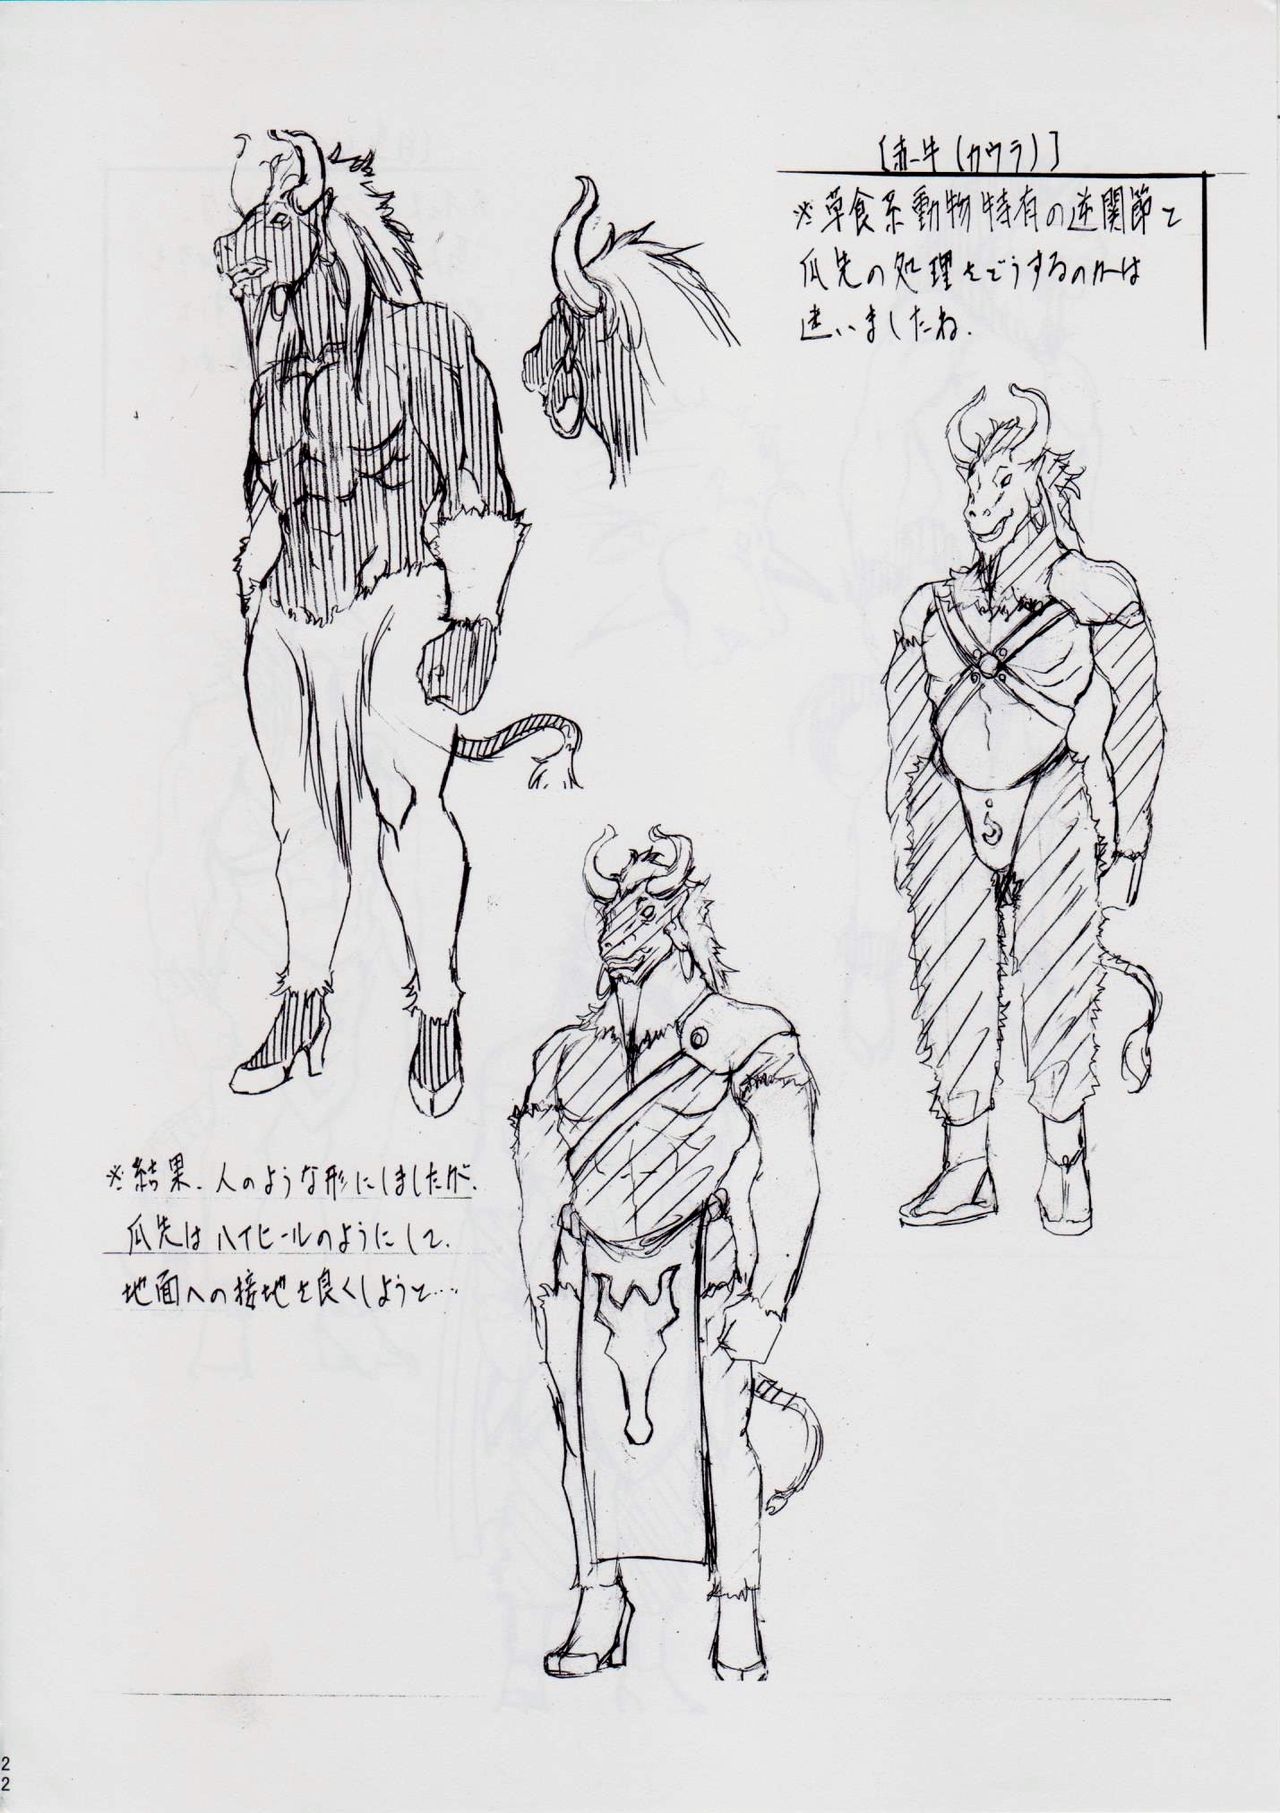 [赤牛(カウラ)]
※草食系動物特有の逆関節と
爪先の処理をどうするのかは
迷いましたね.
※結果、人のような形にしましたが、
爪先はハイヒールのようにして、
地面への接地を良くしようと…
22